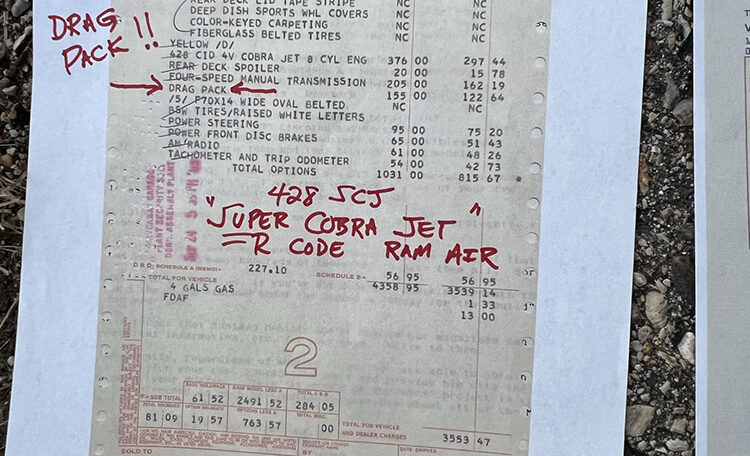 DRAG
PACK !!
REAR DECK LID TAPE STRIPE NC NC
DEEP DISH SPORTS WHL COVERS NC NC
COLOR-KEYED CARPETING NC NC
FIBERGLASS BELTED TIRES NC NC
YELLOW /D/
428 CID 4V COBRA JET 8 CYL ENG 376 00 297 44
REAR DECK SPOILER 20 00 15 78
FOUR-SPEED MANUAL TRANSMISSION 205 00 162 19
DRAG PACK 155 00 122 64
/5/ F70X14 WIDE OVAL BELTED NC NC
BSW TIRES/RAISED WHITE LETTERS
POWER STEERING 95 00 75 20
POWER FRONT DISC BRAKES 65 00 51 43
AM/RADIO 61 00 48 26
TACHOMETER AND TRIP ODOMETER 54 00 42 73
TOTAL OPTIONS 1031 00 815 67 *
PLANT SECURITY
ASSEMBLY PLANT
428 SCJ
"SUPER COBRA JET"
=R CODE RAM AIR
D & D; SCHEDULE A (MEMO)= 227.10 SCHEDULE B= 56 95 56 95
TOTAL FOR VEHICLE 4358 95 3539 14
4 GALS GAS 1 33
FDAF 13 00
2
BASE HOLDBACK BASE MODEL LESS A TOTAL A & B
SUB TOTAL 61 52 2491 52 284 05
TOTAL HOLDBACK OPTION HOLDBACK OPTIONS LESS A TOTAL MISC.
81 09 19 57 763 57 00
TOTAL FOR VEHICLE
AND DEALER CHARGES 3553 47
SOLD TO
BY
DATE SHIPPED